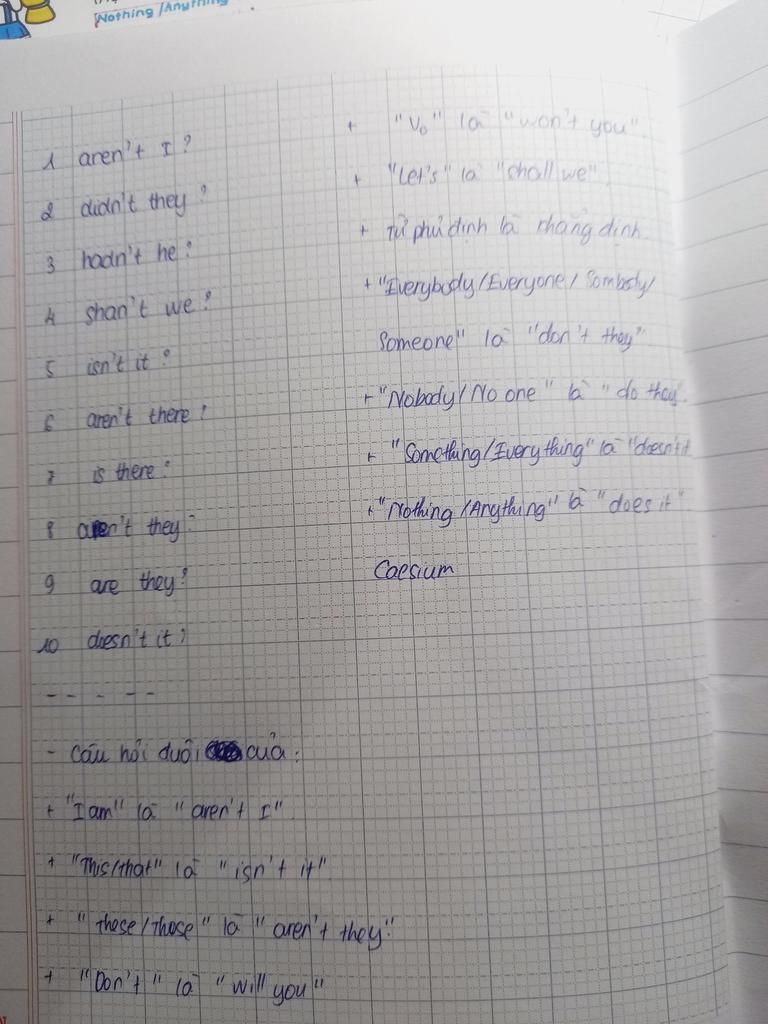 Nothing/Anything
1 aren't I?
2 didn't they?
3 hadn't he?
4 shan't we?
5 isn't it?
6 aren't there?
7 is there?
8 aren't they?
9 are they?
10 doesn't it?
- - - - -
- Câu hỏi đuôi của:
+ "I am" là "aren't I"
+ "This/that" là "isn't it"
+ "these/those" là "aren't they"
+ "Don't" là "will you"
+ "V₀" là "won't you".
+ "Let's" là "shall we".
+ Từ phủ định là khẳng định.
+ "Everybody/Everyone/Sombody/
Someone" là "don't they"
+ "Nobody/No one" là "do they".
+ "Something/Everything" là "doesn't it
+ "Nothing/Anything" là "does it"
Caesium